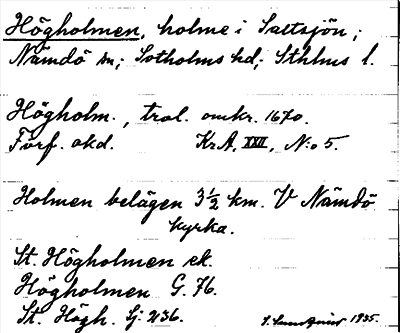 Högholmen, holme i Saltsjön;
Nämdö sn; Sotholms hd; Sthlms l.
Högholm., trol. omkr. 1670.
Förf. okd. Kr.A, XXII, N:o 5.
Holmen belägen 3½ km. V Nämdö
kyrka.
St. Högholmen ek.
Högholmen G. 76.
St. Högh. Gj: 2/36.
1935.